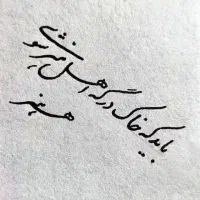 باید که خاک درگه اهل هنر شوی
هنر